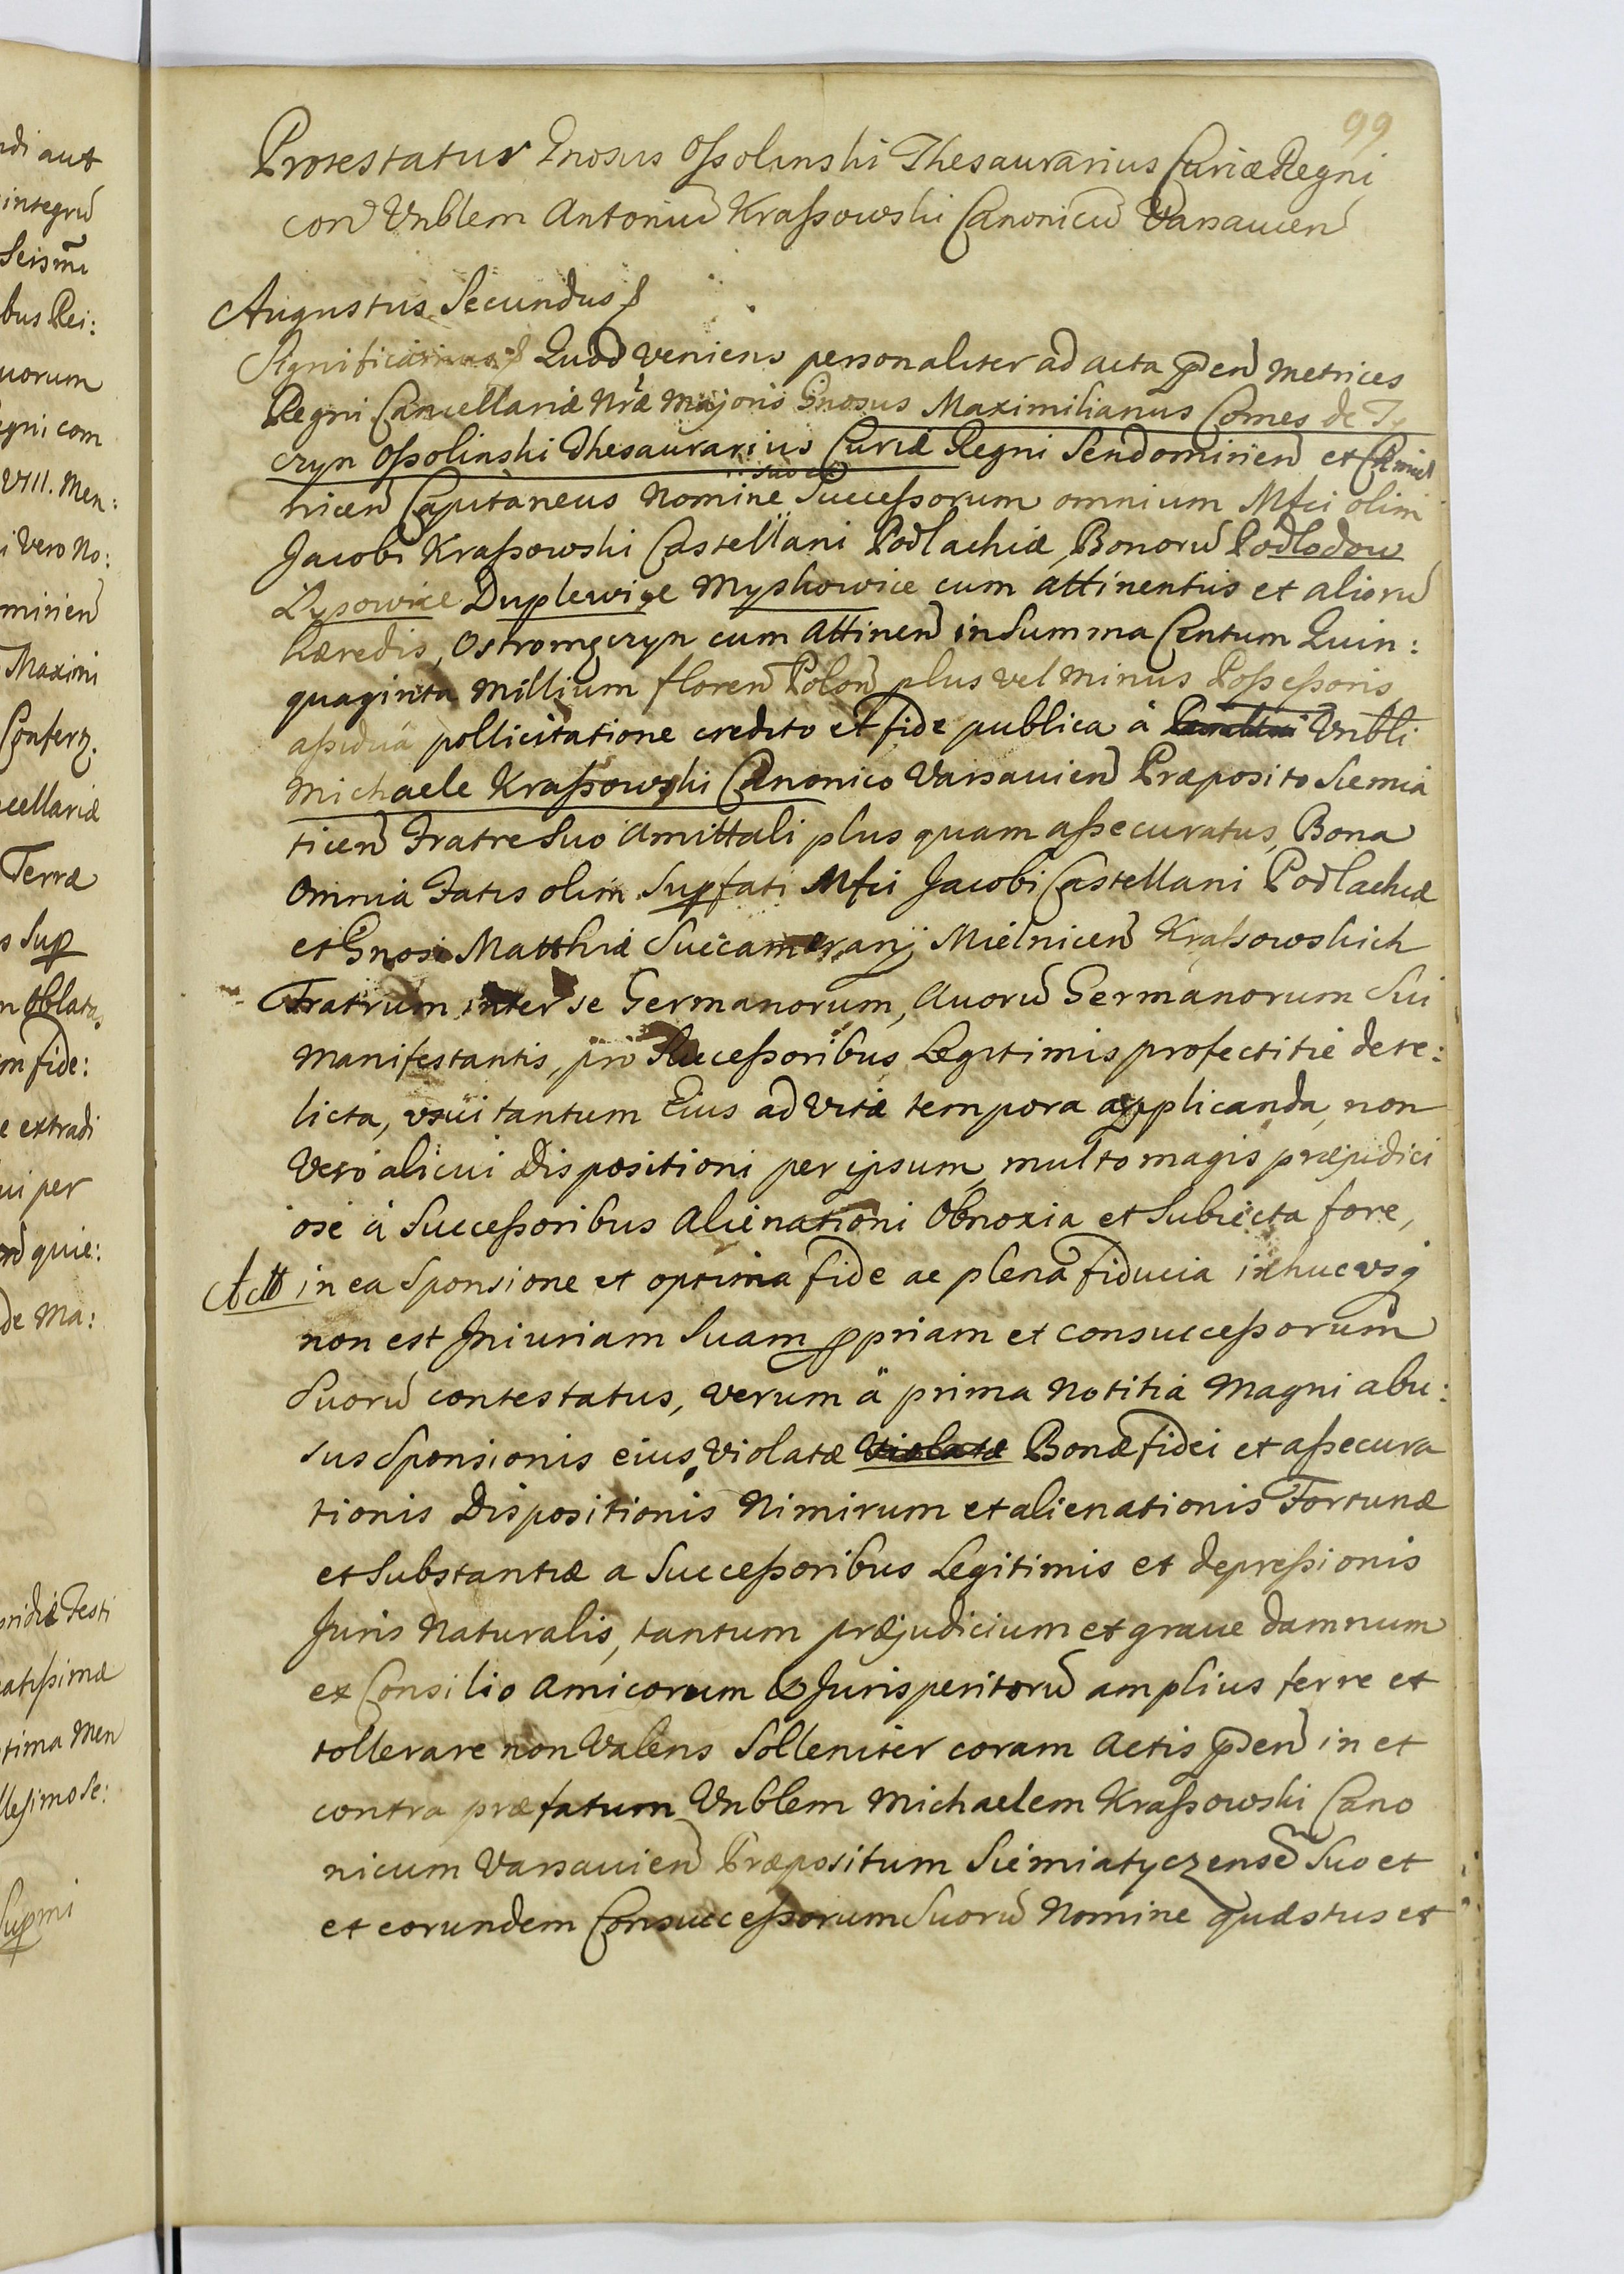 99
Protestatur Gnosus Ossolinski Thesaurarius Curiæ Regni
con Vnblem Antoniũ Krassowski Canonicũ Varsauien
Augustus Secundus
Significamus Quod veniens personaliter ad acta pñden Metrices
Regni Cancellariæ Nræ Majoris Gnosus Maximilianus Comes de T
czyn Ossolinski Thesaurarius Curiæ Regni Sendomirien et
suo et
nicen Capitaneus nomine Successorum omnium Mfci olim
Jacobi Krassowski Castellani Podlachiæ, Bonorũ Podlodow
Lysowice Duplewice Myskowice cum attinentiis et aliorũ
hæredis, Ostromęczyn cum Attinen in Summa Centum Quin:
quaginta Millium floren Polon plus vel minus Possessoris
assidua pollicitatione credito et fide publica à Vnbli
Michaele Krassowski Canonico Varsauien Præposito Siemia
ticen Fratre Suo Amittali plus quam assecuratus, Bona
Omnia Fatis olim Supfati Mfci Jacobi Castellani Podlachiæ
et Gnosi Matthiæ Succamerarij Mielnicen Krassowskich
Fratrum inter se Germanorum, Auorũ Germanorum Sui
Manifestantis, pro Successoribus Legitimis profectitie dere:
licta, vsui tantum Eius ad Vitæ tempora applicanda, non
Vero alicui Dispositioni per ipsum, multo magis præjudici
ose à Successoribus Alienationi Obnoxia et Subiecta fore,
Act in ea Sponsione et optima fide ac plena fiducia in hucvsq
non est Iniuriam Suam ppriam et consuccessorum
Suorũ contestatus, verum à prima Notitia Magni abu:
sus Sponsionis eius, Violatæ Violatæ Bonæ fidei et assecura
tionis Dispositionis Nimirum et alienationis Fortunæ
et Substantiæ a Successoribus Legitimis et depressionis
Juris Naturalis, tantum præjudicium et graue damnum
ex Consilio Amicorum & Jurisperitorũ amplius ferre et
tollerare non Valens Solleniter coram Actis pñden in et
contra præfatum Vnblem Michaelem Krassowski Cano
nicum Varsauien Præpositum Siemiatyczensẽ Suo et
et eorundem Consuccessorum Suorũ Nomine quæstus et